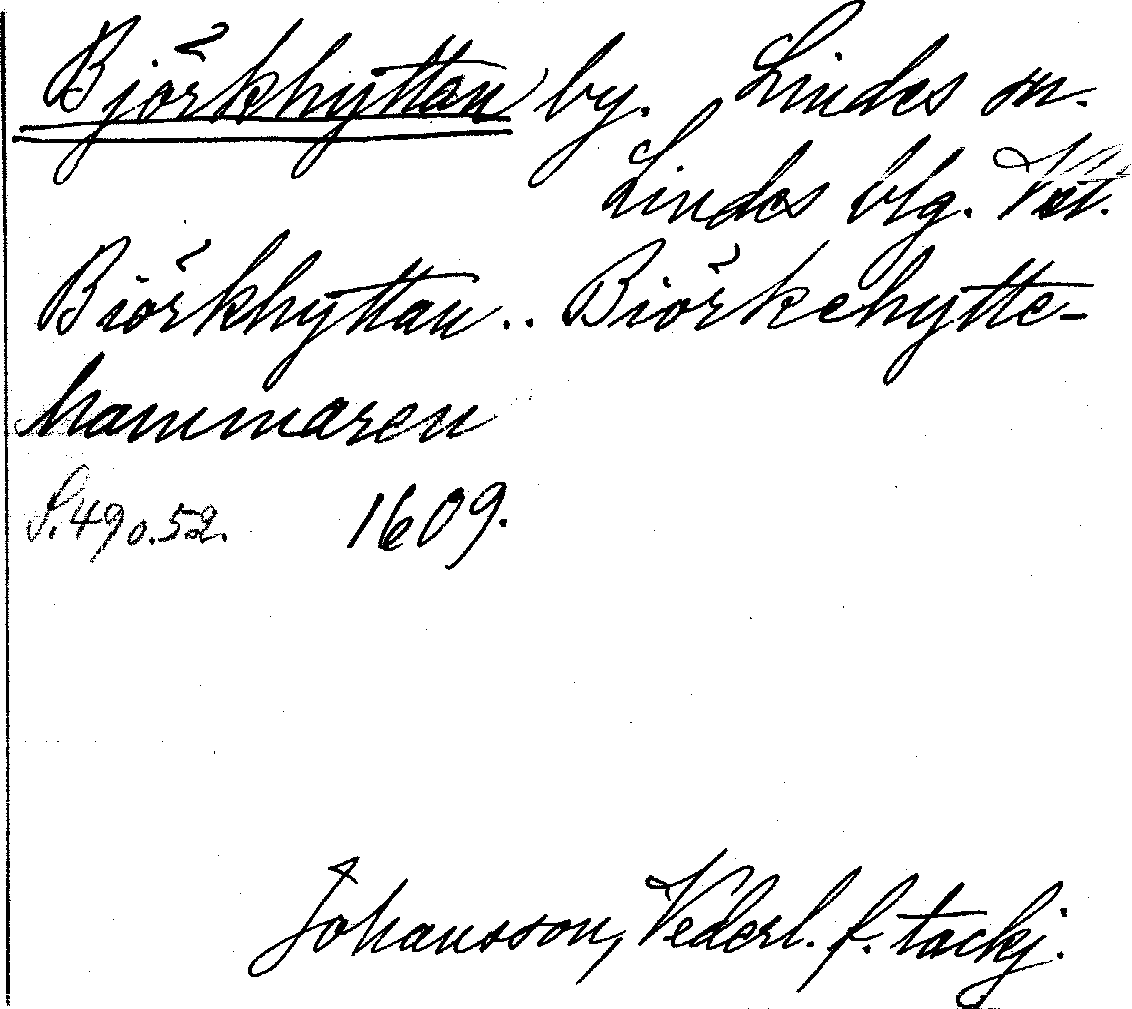 Björkhyttan by. Lindes sn.
Lindes blg. Vstm.
Biörkhyttan .. Biörkehytte-
hammaren
S. 49 o. 52. 1609.
Johansson, Vederl. f. tackj.